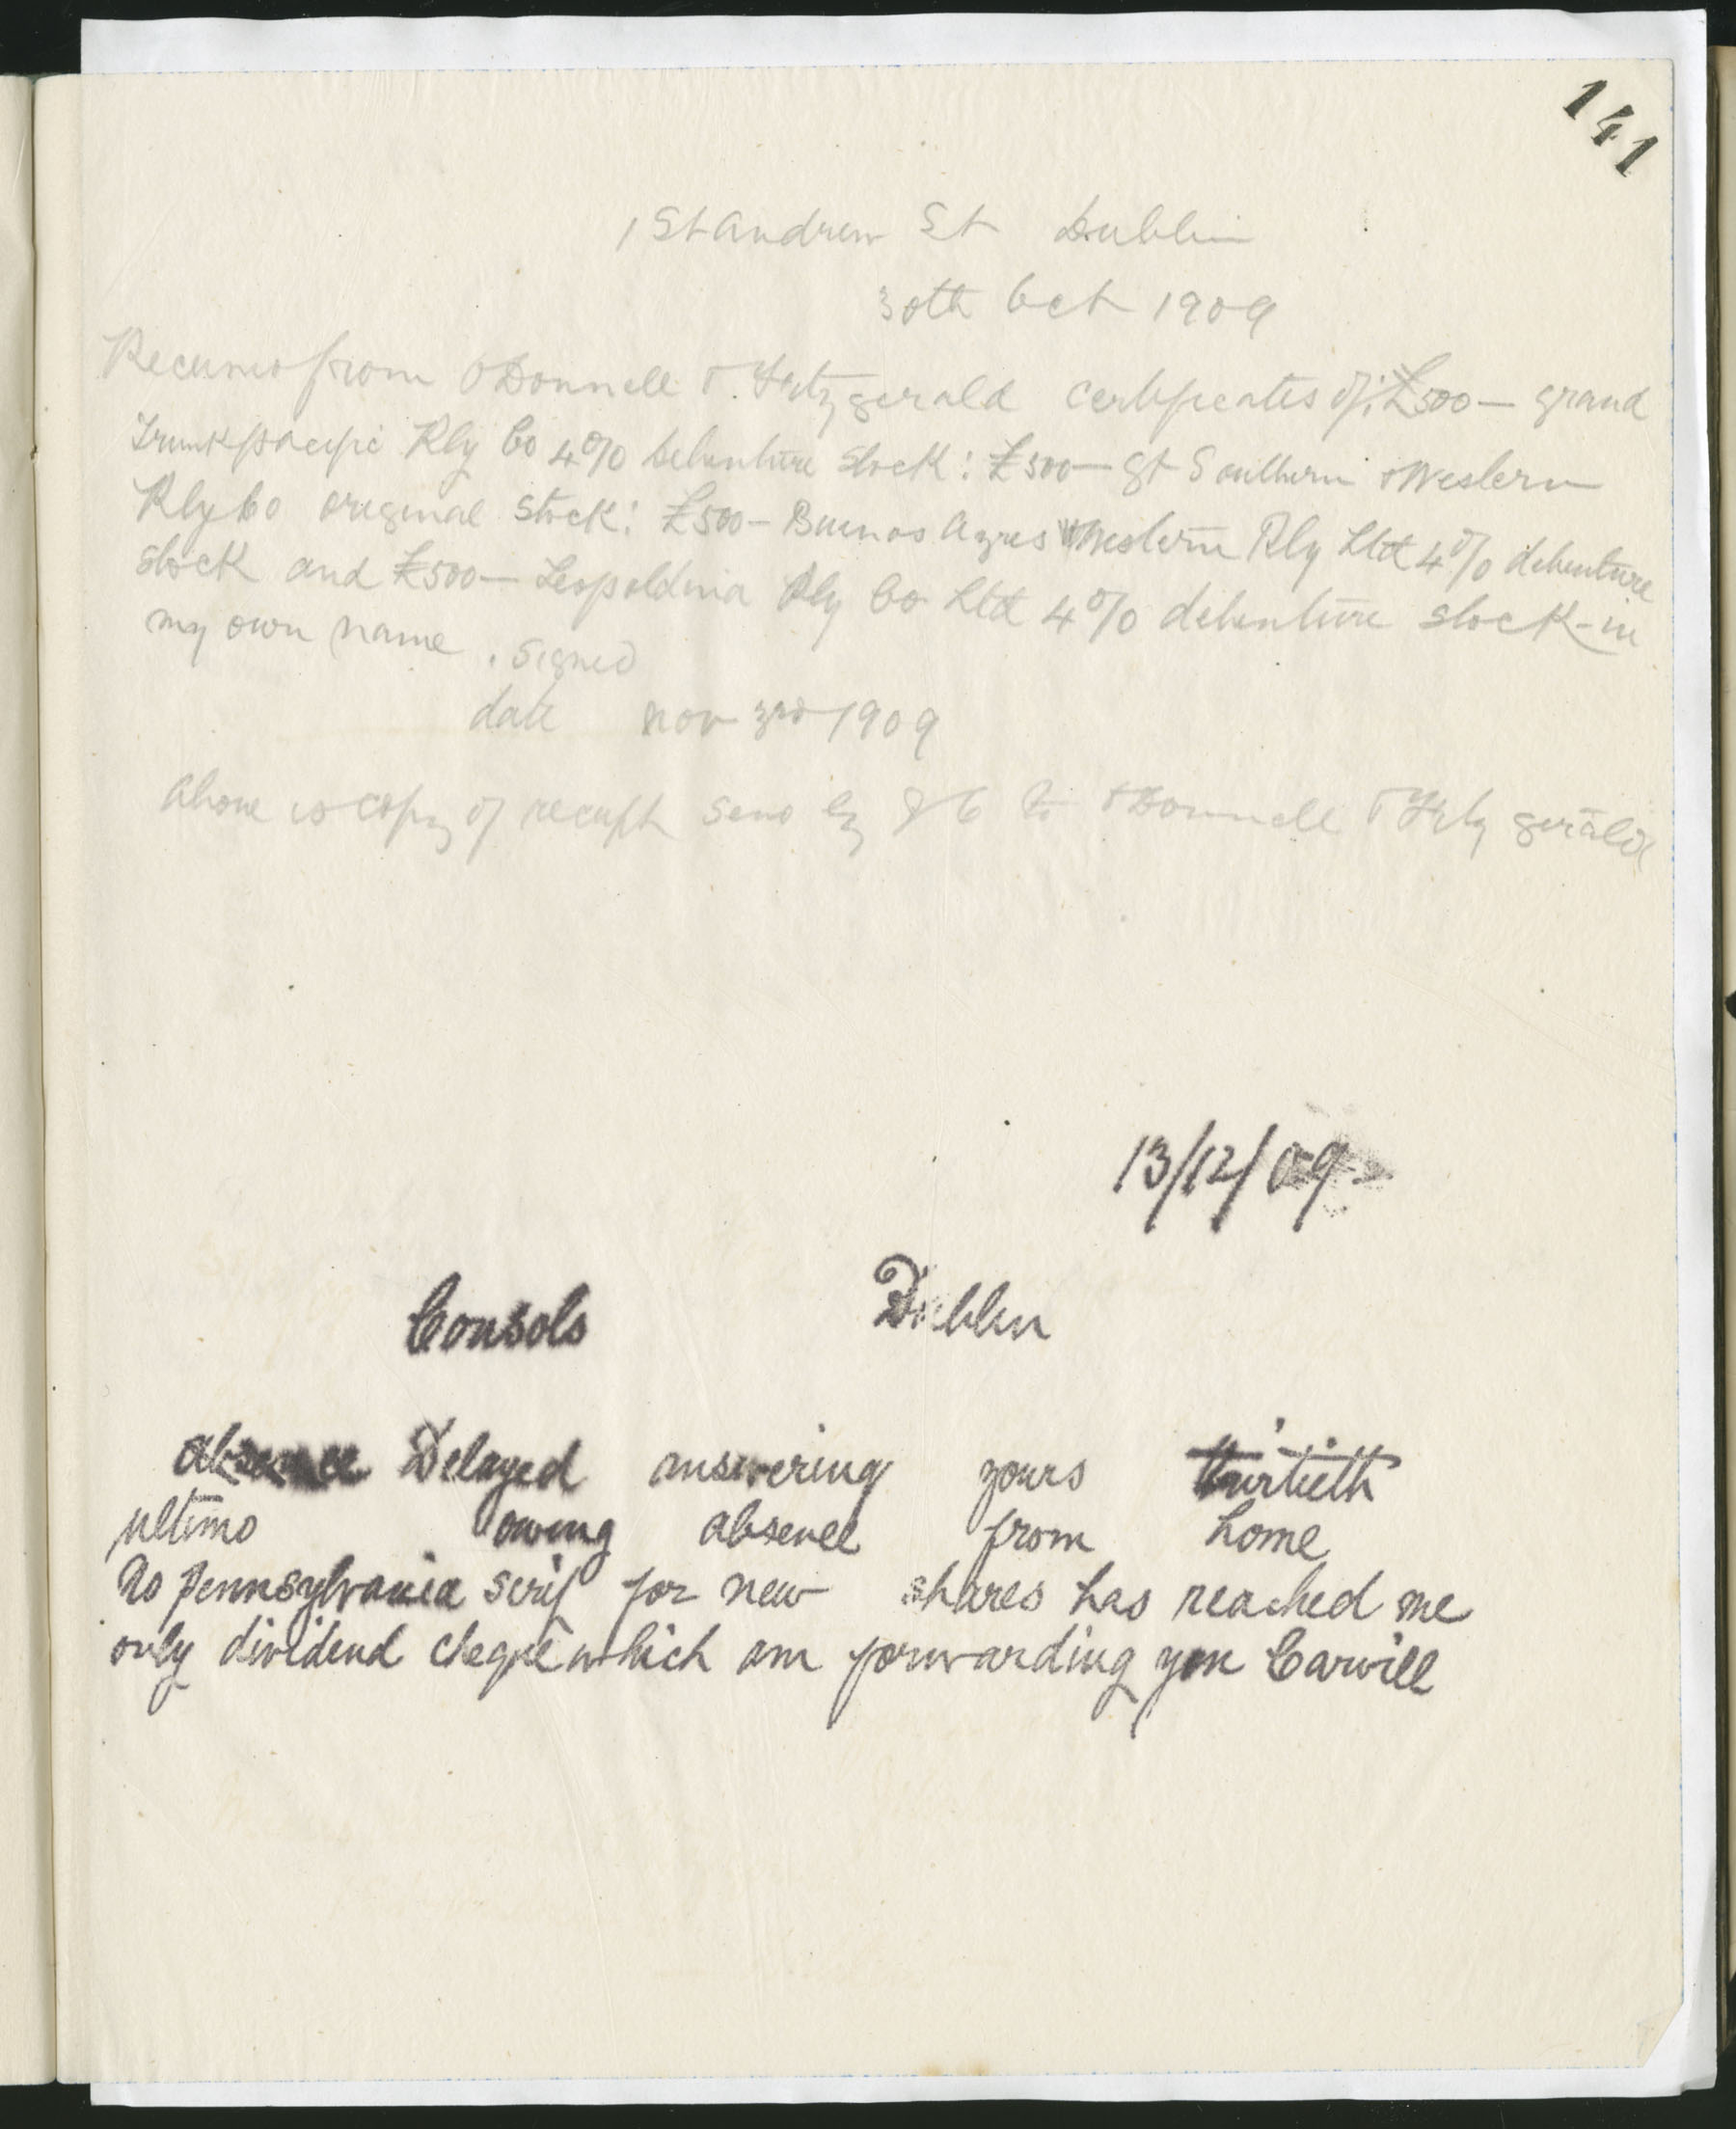 141
1 St Andrew St Dublin
30th Oct 1909
Received from O'Donnell & Fitzgerald certificates of; £500 — grand
Trunk pacific Rly Co 4% debenture stock: £500 — gt Southern & Western
Rly Co original stock: £500 — Buenos Ayres Western Rly Ltd 4% debenture
stock and £500 — Leopoldina Rly Co Ltd 4% debenture stock - in
my own name. signed
date nov 3rd 1909
above is copy of receipt send by to O'Donnell & Fitzgerald
13/12/09
Consols Dublin
absence Delayed answering yours thirtieth
ultimo owing absence from home
No Pennsylvania scrip for new shares has reached me
only dividend cheque which am forwarding you Carvill